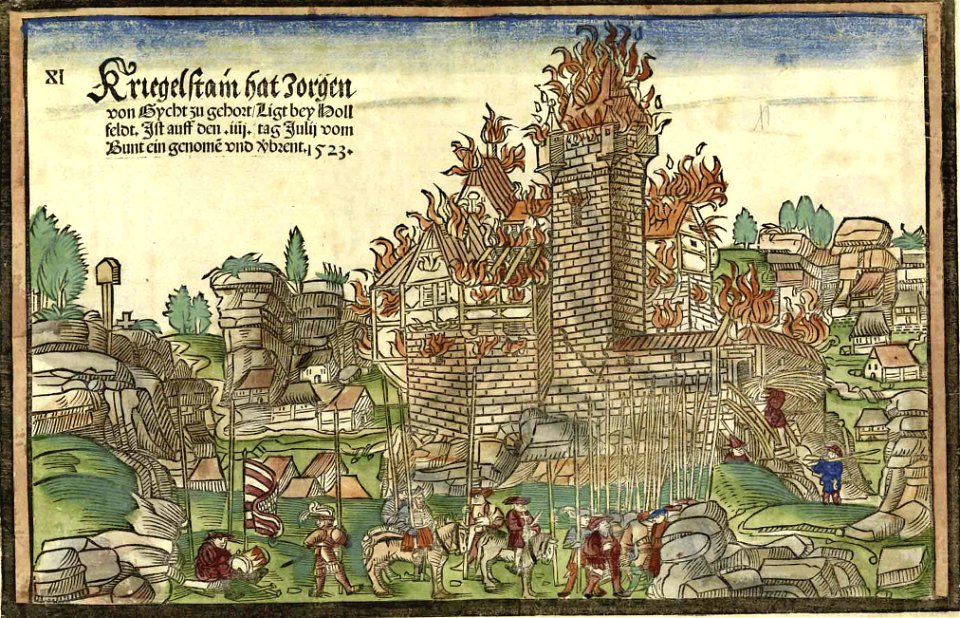 XI
Kriegelstain hat Jorgen
von Gycht zu gehort / Ligt bey Holl
feldt. Ist auff den .iiij. tag Julij vom
Bunt ein genomē vnd v̄brent. 1523.